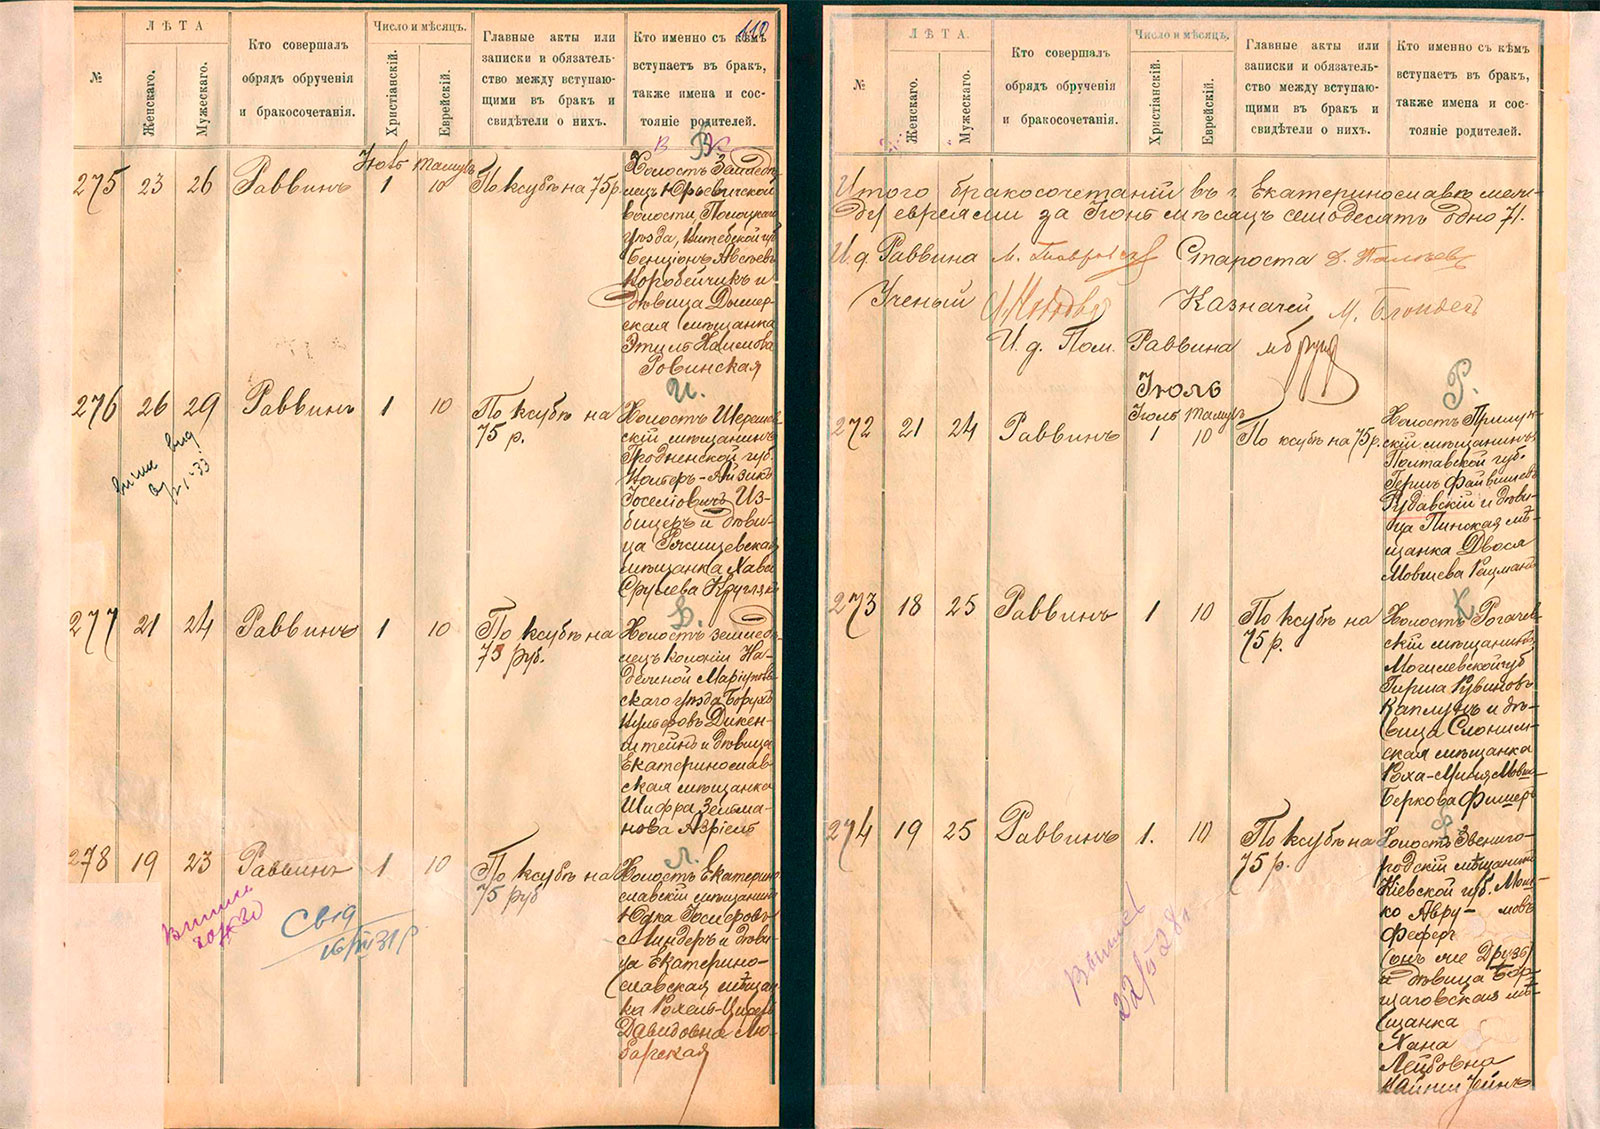 110
№
ЛѢТА
Женскаго.
Мужескаго.
Кто совершалъ
обрядъ обрученія
и бракосочетанія.
Число и мѣсяцъ.
Христіанскій.
Еврейскій.
Главные акты или
записки и обязатель-
ство между вступаю-
щими въ бракъ и
свидѣтели о нихъ.
Кто именно съ кѣмъ
вступаетъ въ бракъ,
также имена и сос-
тояніе родителей.
275 23 26 Раввинъ
Іюль Тамузъ
1 10
По ксубѣ на 75 р.
Холостъ Землед-
лецъ Юрьевичской
волости, Полоцкаго
уѣзда, Витебской губ
Бенціонъ
Коробейчикъ и
дѣвица
ская мѣщанка
Ровинская
И.
276 26 29 Раввинъ 1 10
По ксубѣ на
75 р.
Холостъ
скій мѣщанинъ
Гродненской губ.
Айзикъ
Іоселіовичъ Из-
бицеръ и дѣви-
ца
мѣщанка Хава
Срулева
277 21 24 Раввинъ 1 10
По ксубѣ на
75 руб.
Холостъ землед-
лецъ колоніи На-
дежной Маріуполь
скаго уѣзда Борухъ
Дикен-
штейнъ и дѣвица
Екатеринослав-
ская мѣщанка
Шифра Зельма-
нова Азріель
Л.
278 19 23 Раввинъ 1 10
По ксубѣ на
75 руб
Холостъ Екатерино
славскій мѣщанинъ
Юдка Іосифовъ
Миндеръ и дѣви-
ца Екатерино-
славская мѣщан
ка Рохель-
Давидовна Лю-
барская
№
ЛѢТА.
Женскаго.
Мужескаго.
Кто совершалъ
обрядъ обрученія
и бракосочетанія.
Число и мѣсяцъ.
Христіанскій.
Еврейскій.
Главные акты или
записки и обязатель-
ство между вступаю-
щими въ бракъ и
свидѣтели о нихъ.
Кто именно съ кѣмъ
вступаетъ въ бракъ,
также имена и сос-
тояніе родителей.
Итого бракосочетаній въ г. Екатеринославѣ меж-
ду евреями за Іюнь мѣсяцъ семьдесятъ одно 71.
И. д. Раввина Староста
Ученый Казначей
И. д. Пом. Раввина
Іюль
Р.
Іюль Тамузъ
272 21 24 Раввинъ 1 10
По ксубѣ на 75 р.
Холостъ Прилук-
скій мѣщанинъ
Полтавской губ.
Гершъ Файвишевъ
Рудавскій и дѣви-
ца Пинская мѣ-
щанка Двося
Мовшева
К
273 18 25 Раввинъ 1 10
По ксубѣ на
75 р.
Холостъ Рогачев-
скій мѣщанинъ
Могилевской губ
Гирша Рувиновъ
Каплунъ и дѣ-
вица Слоним-
ская мѣщанка
Берковна Фишеръ
274 19 25 Раввинъ 1. 10
По ксубѣ на
75 р.
Холостъ Звениго-
родскій мѣщанинъ
Кіевской губ. Мош-
ко Авру-мовъ
Феферъ
(онъ же Друзъ)
и дѣвица Бор-
щаговская мѣ-
щанка
Хана
Лейбовна